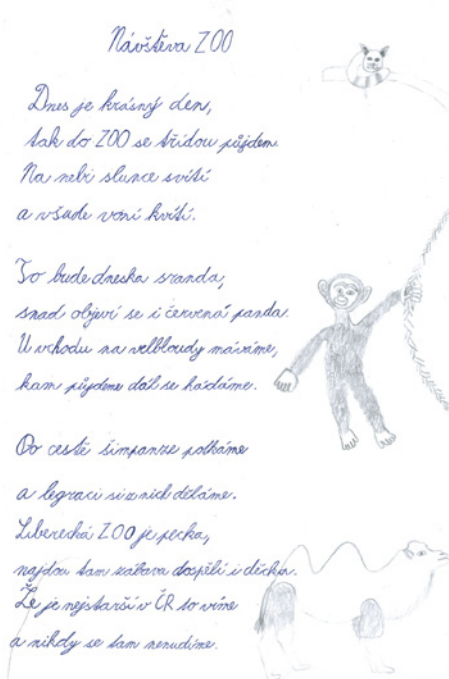 Návštěva ZOO
Dnes je krásný den,
tak do ZOO se třídou půjdem.
Na nebi slunce svítí
a všude voní kvítí.
To bude dneska sranda,
snad objeví se i červená panda.
U vchodu na velbloudy máváme,
kam půjdeme dál se hádáme.
Po cestě šimpanze potkáme
a legraci si z nich děláme.
Liberecká ZOO je pecka,
najdou tam zábavu dospělí i děcka.
Že je nejstarší v ČR to víme
a nikdy se tam nenudíme.